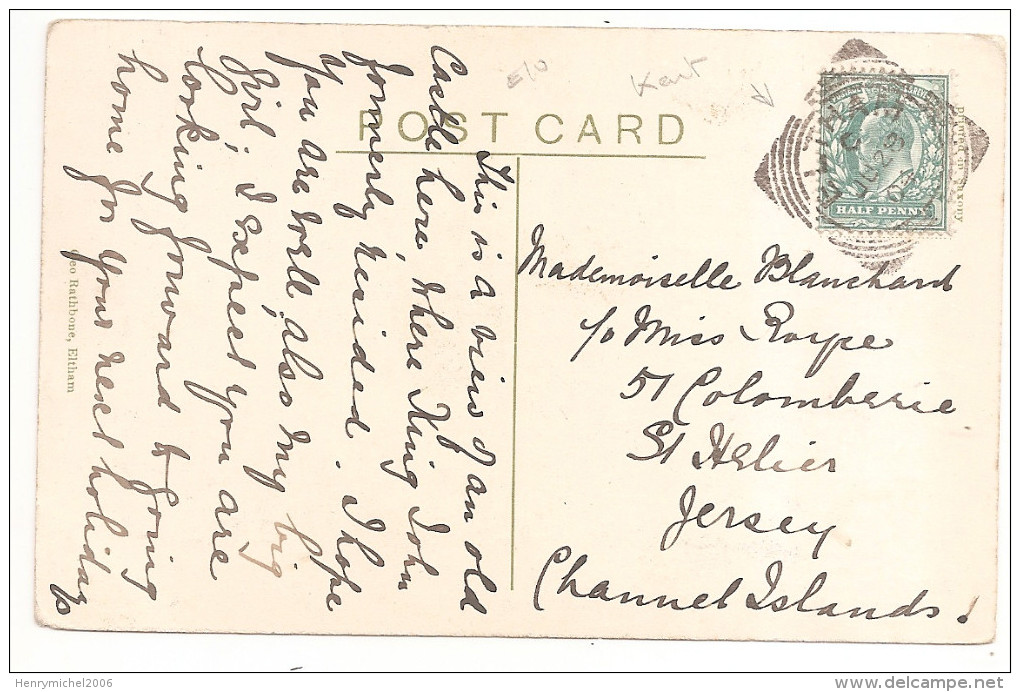 E/O
Kent
POST CARD
HALF PENNY
Printed in Saxony
This is a view of an old
Castle here, where King John
formerly resided. I hope
you are well, also my big
girl; I expect you are
looking forward to going
home for your next holidays
Geo Rathbone, Eltham
Mademoiselle Blanchard
c/o Miss Roype
51 Colomberie
St Helier
Jersey
Channel Islands.
Henrymichel2006
delcampe.net